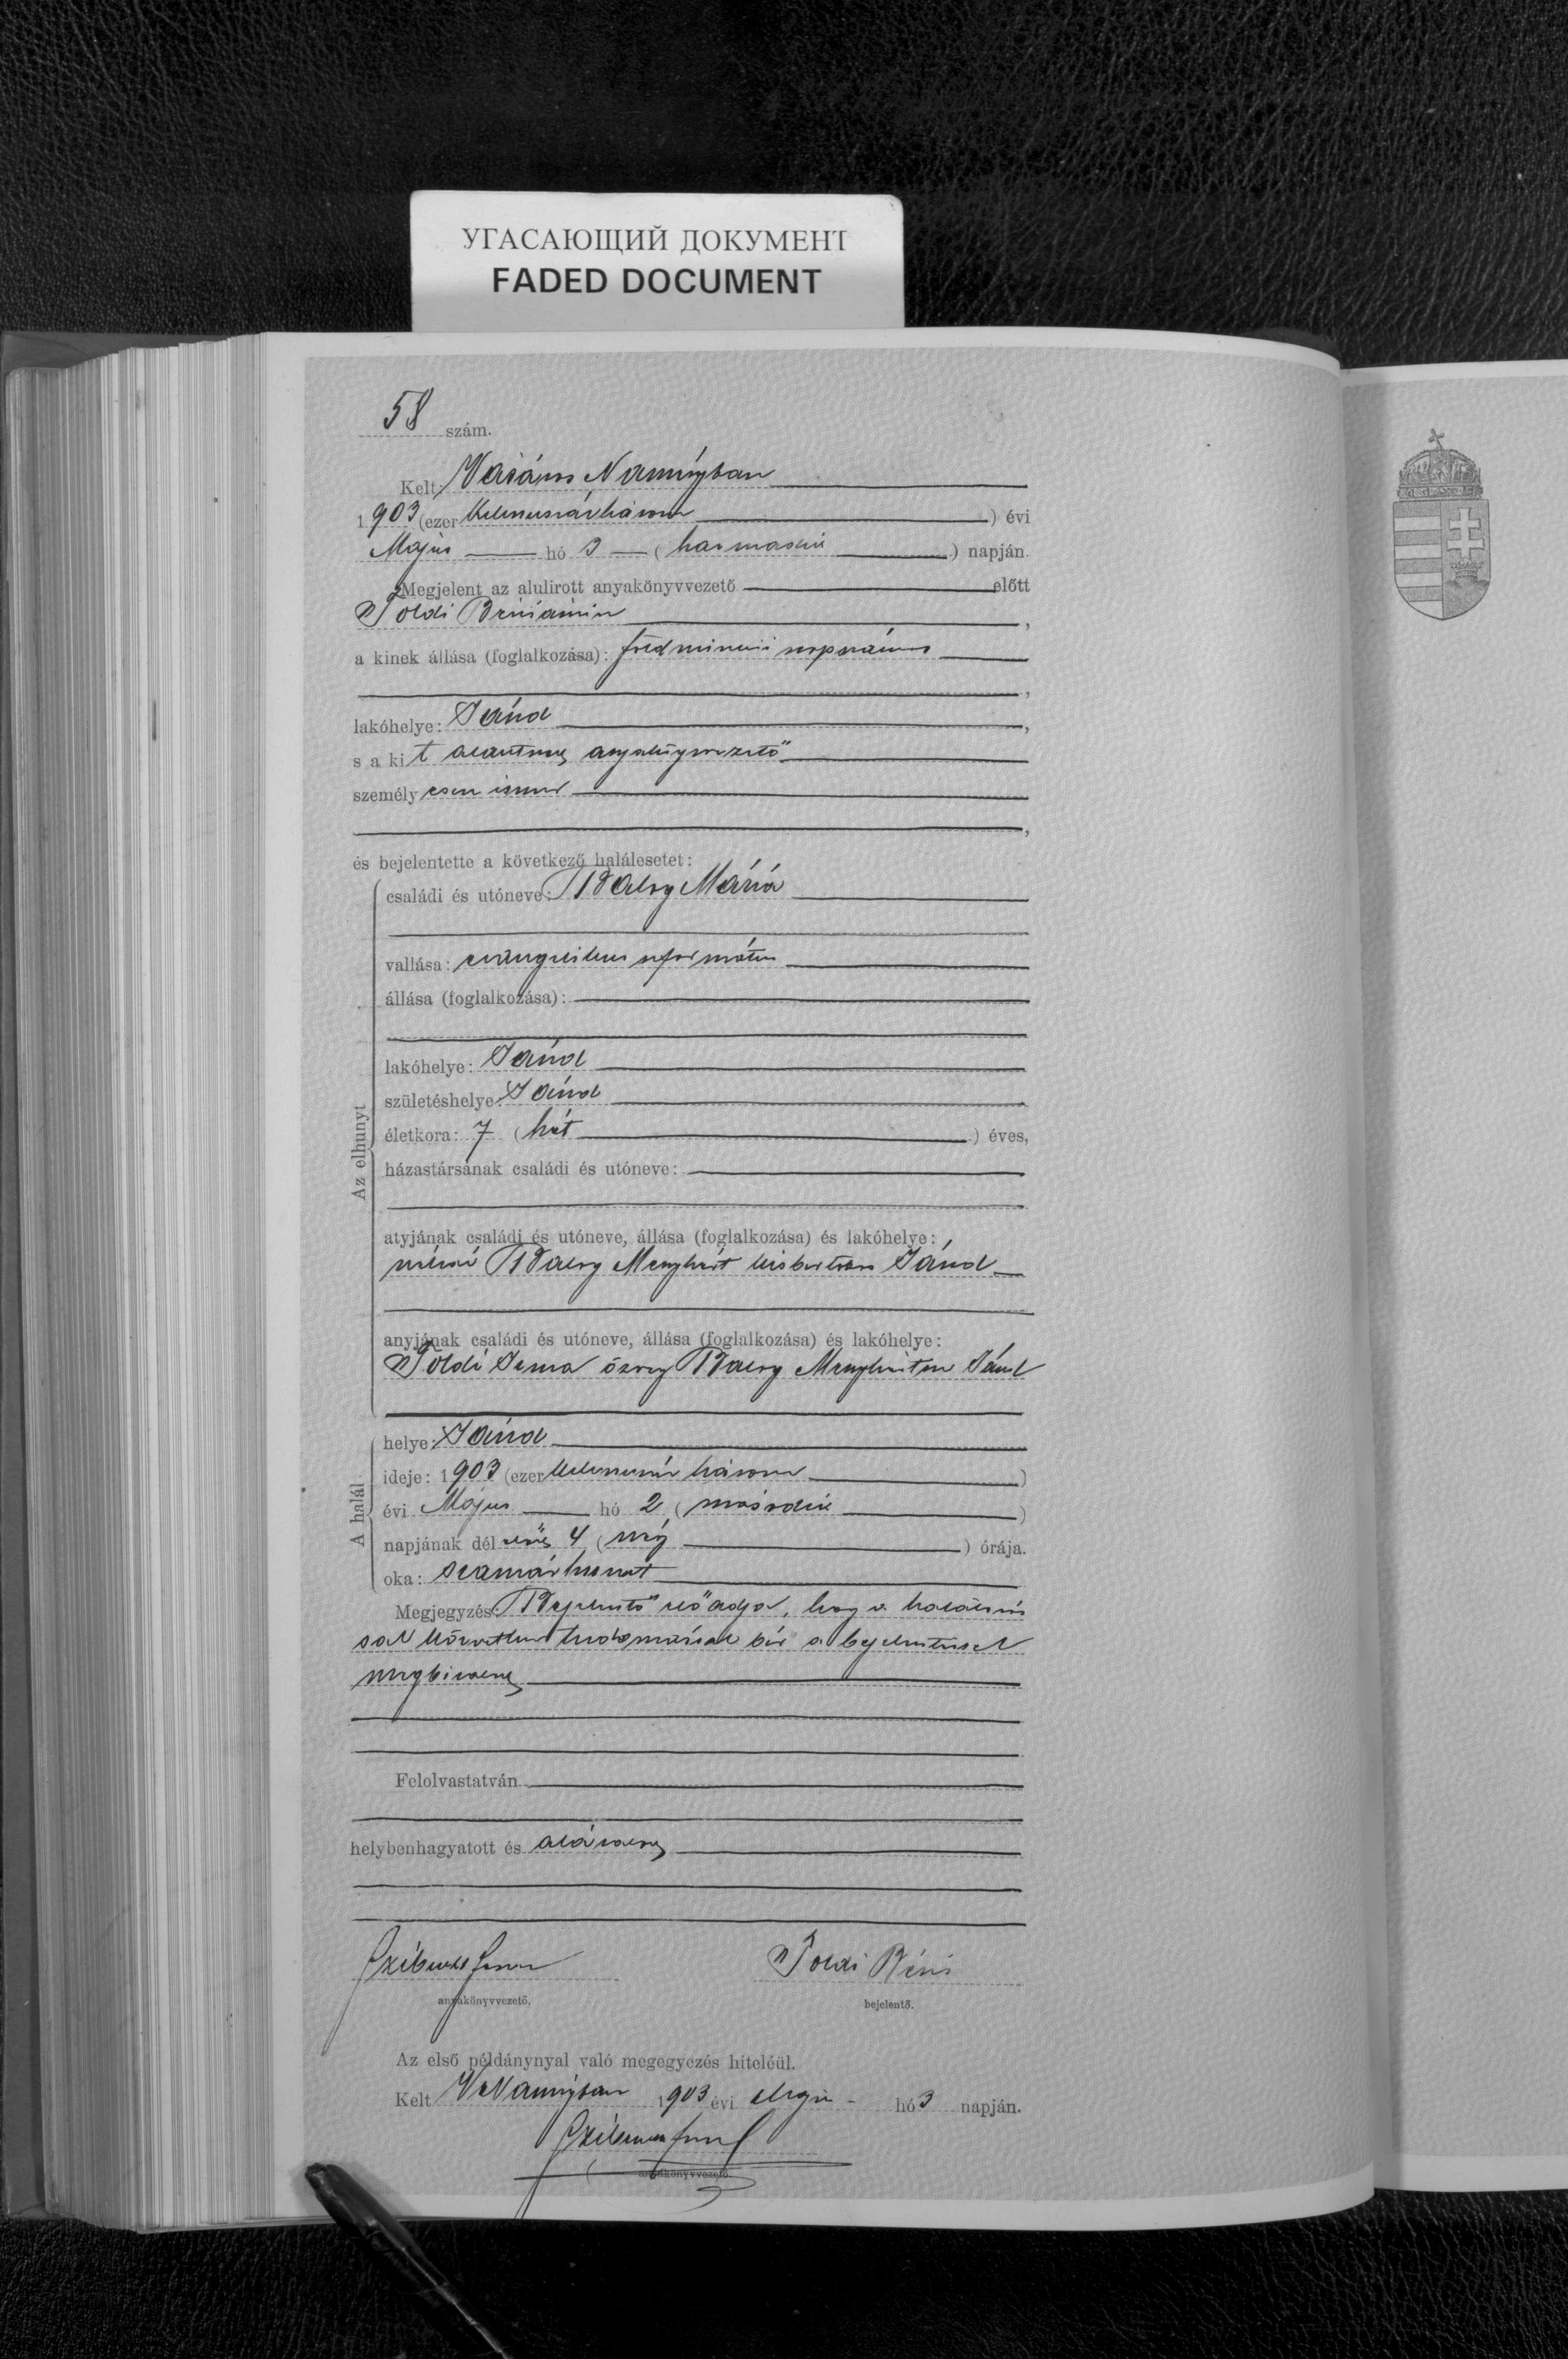 УГАСАЮЩИЙ ДОКУМЕНТ
FADED DOCUMENT
58 szám.
Kelt: Vásáros Naményban
1903 (ezer kilenczszázhárom) évi
Május hó 3 (harmadik) napján.
Megjelent az alulirott anyakönyvvezető előtt
Földi Beniámin,
a kinek állása (foglalkozása): földmivelő napszámos
,
lakóhelye: Jánd,
s a kit alantirt anyakönyvvezető
személyesen ismer
,
és bejelentette a következő halálesetet:
Az elhunyt
családi és utóneve: Balog Mária
vallása: evangelikus református
állása (foglalkozása):
lakóhelye: Jánd
születéshelye: Jánd
életkora: 7 (hét) éves,
házastársának családi és utóneve:
atyjának családi és utóneve, állása (foglalkozása) és lakóhelye:
néhai Balog Menyhért kisbirtokos Jánd
anyjának családi és utóneve, állása (foglalkozása) és lakóhelye:
Földi özvegy Balog Menyhértné Jánd
A halál
helye: Jánd
ideje: 1903 (ezer kilenczszáz három)
évi Május hó 2 (második)
napjának dél előtt 4 (négy) órája.
oka: szamárhurut
Megjegyzés: Bejelentő előadja, hogy a haláleset
közvetlen tudomással bir a bejelentéssel
Felolvastatván
helybenhagyatott és aláiratott
Földi Béni
anyakönyvvezető.
bejelentő.
Az első példánynyal való megegyezés hiteléül.
Kelt V Naményban 1903 évi Május hó 3 napján.
anyakönyvvezető.